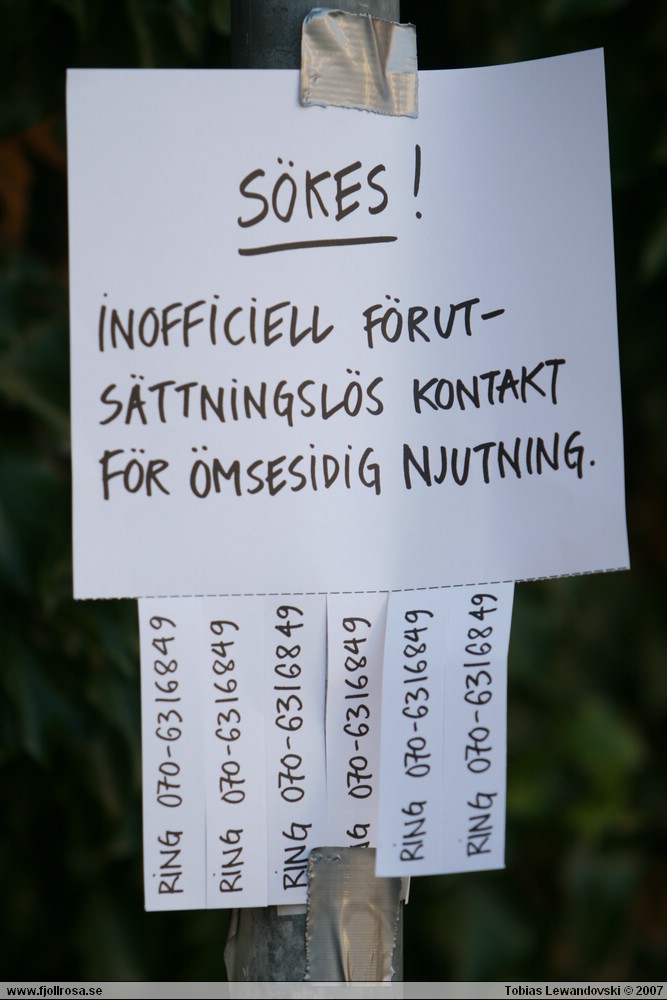 SÖKES!
INOFFICIELL FÖRUT-
SÄTTNINGSLÖS KONTAKT
FÖR ÖMSESIDIG NJUTNING.
RING 070-6316849
RING 070-6316849
RING 070-6316849
070-6316849
RING 070-6316849
RING 070-6316849
www.fjollrosa.se
Tobias Lewandovski © 2007